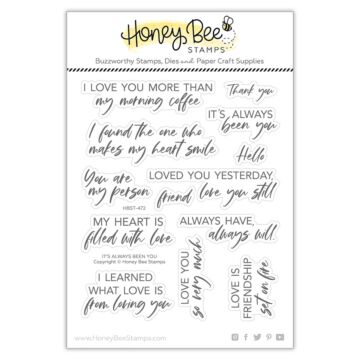 Honey Bee
STAMPS
Buzzworthy Stamps, Dies and Paper Craft Supplies
I LOVE YOU MORE THAN
my morning coffee
Thank you
IT'S ALWAYS
been you
I found the one who
makes my heart smile
Hello
You are
my person
LOVED YOU YESTERDAY,
love you still
friend
HBST-472
MY HEART IS
filled with love
ALWAYS HAVE,
always will.
IT'S ALWAYS BEEN YOU
Copyright © Honey Bee Stamps
I LEARNED
WHAT LOVE IS
from loving you
LOVE YOU
so very much
LOVE IS
FRIENDSHIP
set on fire
www.HoneyBeeStamps.com